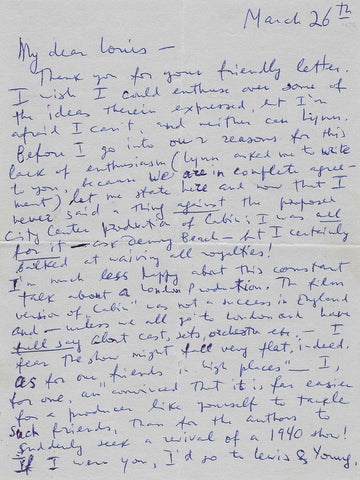 March 26th
My dear Louis —
Thank you for your friendly letter.
I wish I could enthuse over some of
the ideas therein expressed, but I'm
afraid I can't, and neither can Lynn.
Before I go into our reasons for this
lack of enthusiasm (Lynn asked me to write
to you, because we are in complete agree-
ment) let me state here and now that I
never said a thing against the proposed
City Center production of "Cabin"; I was all
for it — ask Denny Beach — but I certainly
balked at waiving all royalties!
I'm much less happy about this constant
talk about a London Production. The film
version of "Cabin" was not a success in England
and — unless we all go to London and have
full say about cast, sets, orchestra etc. — I
fear the show might fall very flat, indeed.
As for our "friends in high places" — I,
for one, am convinced that it is far easier
for a producer like yourself to tackle
such friends, than for the authors to
suddenly seek a revival of a 1940 show!
If I were you, I'd go to Lewis & Young,